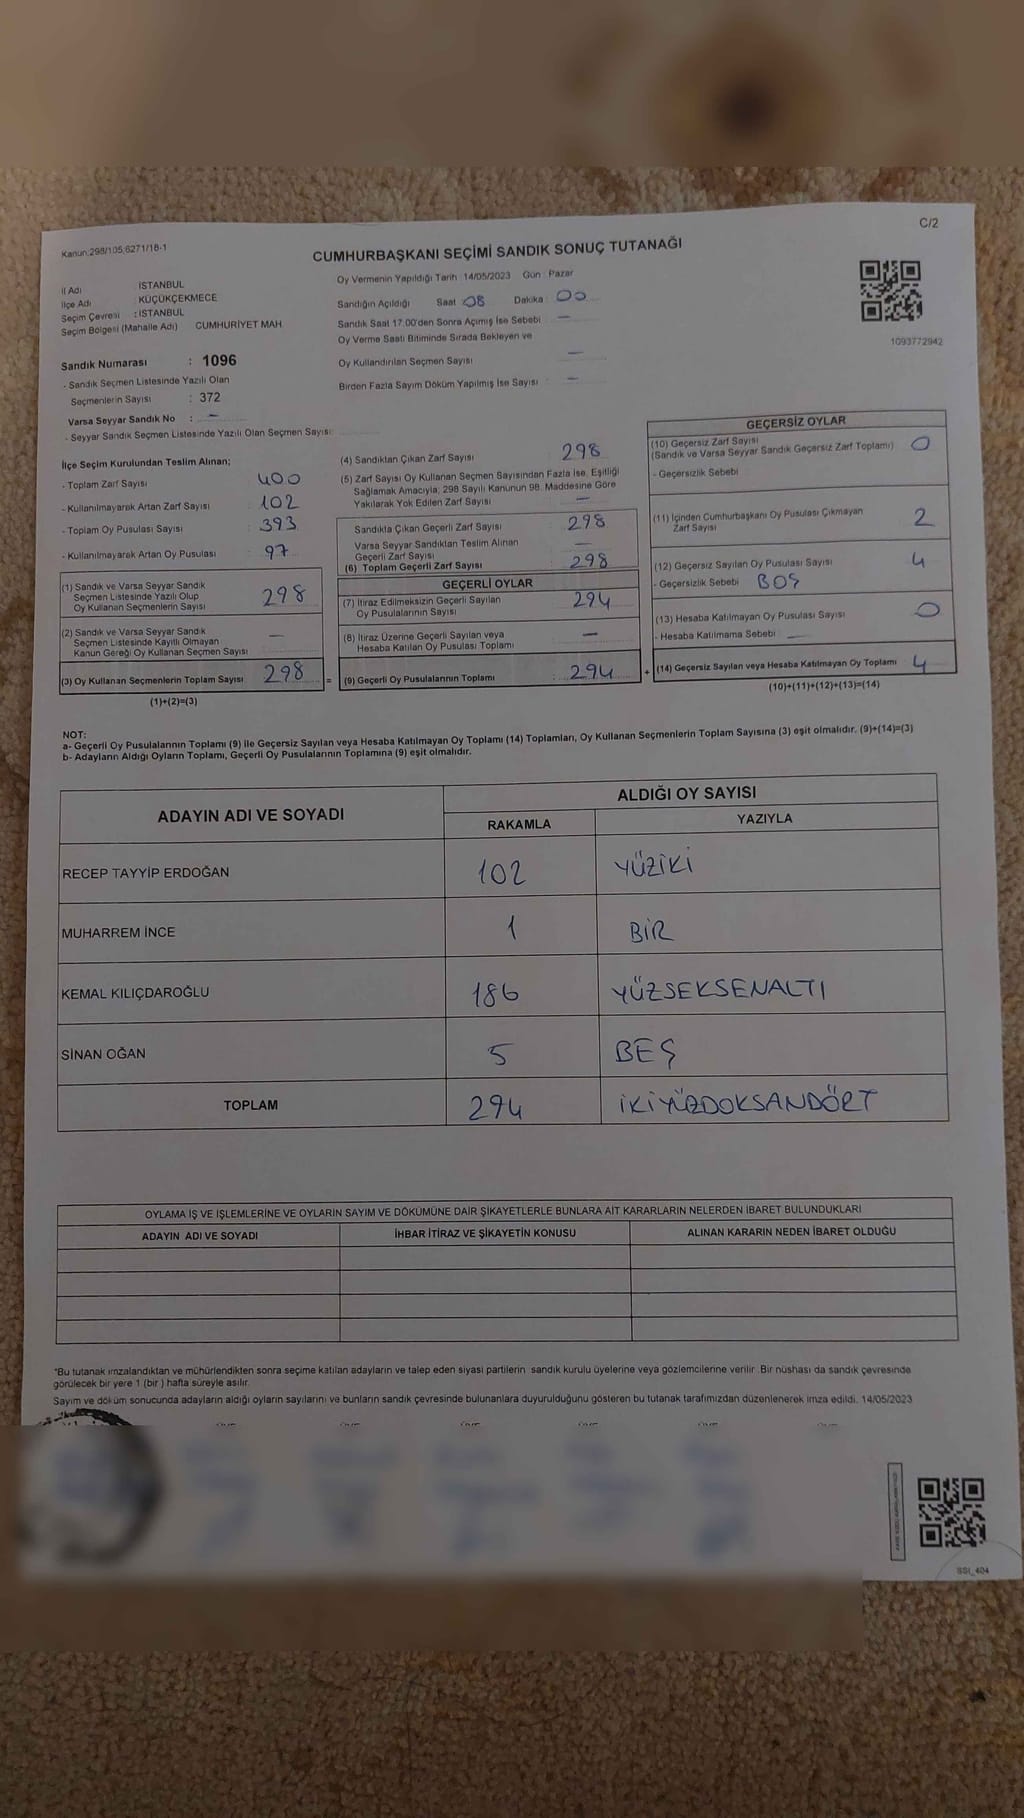 C/2
Kanun:298/105,6271/18-1
CUMHURBAŞKANI SEÇİMİ SANDIK SONUÇ TUTANAĞI
İl Adı : İSTANBUL
İlçe Adı : KÜÇÜKÇEKMECE
Seçim Çevresi : İSTANBUL
Seçim Bölgesi (Mahalle Adı) CUMHURİYET MAH
Oy Vermenin Yapıldığı Tarih : 14/05/2023 Gün : Pazar
Sandığın Açıldığı Saat 08 Dakika : 00
Sandık Saat 17.00'den Sonra Açımış İse Sebebi : —
Oy Verme Saati Bitiminde Sırada Bekleyen ve
Oy Kullandırılan Seçmen Sayısı : —
Birden Fazla Sayım Döküm Yapılmış İse Sayısı : —
1093772942
Sandık Numarası : 1096
- Sandık Seçmen Listesinde Yazılı Olan
Seçmenlerin Sayısı : 372
Varsa Seyyar Sandık No : —
- Seyyar Sandık Seçmen Listesinde Yazılı Olan Seçmen Sayısı:
İlçe Seçim Kurulundan Teslim Alınan;
- Toplam Zarf Sayısı : 400
- Kullanılmayarak Artan Zarf Sayısı : 102
- Toplam Oy Pusulası Sayısı : 393
- Kullanılmayarak Artan Oy Pusulası : 97
(1) Sandık ve Varsa Seyyar Sandık
Seçmen Listesinde Yazılı Olup
Oy Kullanan Seçmenlerin Sayısı : 298
(2) Sandık ve Varsa Seyyar Sandık
Seçmen Listesinde Kayıtlı Olmayan
Kanun Gereği Oy Kullanan Seçmen Sayısı : —
(3) Oy Kullanan Seçmenlerin Toplam Sayısı : 298 =
(1)+(2)=(3)
(4) Sandıktan Çıkan Zarf Sayısı : 298
(5) Zarf Sayısı Oy Kullanan Seçmen Sayısından Fazla İse, Eşitliği
Sağlamak Amacıyla, 298 Sayılı Kanunun 98. Maddesine Göre
Yakılarak Yok Edilen Zarf Sayısı : —
Sandıkta Çıkan Geçerli Zarf Sayısı : 298
Varsa Seyyar Sandıktan Teslim Alınan
Geçerli Zarf Sayısı : —
(6) Toplam Geçerli Zarf Sayısı : 298
GEÇERLİ OYLAR
(7) İtiraz Edilmeksizin Geçerli Sayılan
Oy Pusulalarının Sayısı : 294
(8) İtiraz Üzerine Geçerli Sayılan veya
Hesaba Katılan Oy Pusulası Toplamı : —
(9) Geçerli Oy Pusulalarının Toplamı : 294 +
GEÇERSİZ OYLAR
(10) Geçersiz Zarf Sayısı
(Sandık ve Varsa Seyyar Sandık Geçersiz Zarf Toplamı) : 0
- Geçersizlik Sebebi
(11) İçinden Cumhurbaşkanı Oy Pusulası Çıkmayan
Zarf Sayısı : 2
(12) Geçersiz Sayılan Oy Pusulası Sayısı : 4
- Geçersizlik Sebebi : BOŞ
(13) Hesaba Katılmayan Oy Pusulası Sayısı : 0
- Hesaba Katılmama Sebebi : —
(14) Geçersiz Sayılan veya Hesaba Katılmayan Oy Toplamı : 4
(10)+(11)+(12)+(13)=(14)
NOT:
a- Geçerli Oy Pusulalarının Toplamı (9) ile Geçersiz Sayılan veya Hesaba Katılmayan Oy Toplamı (14) Toplamları, Oy Kullanan Seçmenlerin Toplam Sayısına (3) eşit olmalıdır. (9)+(14)=(3)
b- Adayların Aldığı Oyların Toplamı, Geçerli Oy Pusulalarının Toplamına (9) eşit olmalıdır.
ADAYIN ADI VE SOYADI ALDIĞI OY SAYISI
RAKAMLA YAZIYLA
RECEP TAYYİP ERDOĞAN 102 YÜZİKİ
MUHARREM İNCE 1 BİR
KEMAL KILIÇDAROĞLU 186 YÜZSEKSENALTI
SİNAN OĞAN 5 BEŞ
TOPLAM 294 İKİYÜZDOKSANDÖRT
OYLAMA İŞ VE İŞLEMLERİNE VE OYLARIN SAYIM VE DÖKÜMÜNE DAİR ŞİKAYETLERLE BUNLARA AİT KARARLARIN NELERDEN İBARET BULUNDUKLARI
ADAYIN ADI VE SOYADI İHBAR İTİRAZ VE ŞİKAYETİN KONUSU ALINAN KARARIN NEDEN İBARET OLDUĞU
*Bu tutanak imzalandıktan ve mühürlendikten sonra seçime katılan adayların ve talep eden siyasi partilerin sandık kurulu üyelerine veya gözlemcilerine verilir. Bir nüshası da sandık çevresinde
görülecek bir yere 1 (bir ) hafta süreyle asılır.
Sayım ve döküm sonucunda adayların aldığı oyların sayılarını ve bunların sandık çevresinde bulunanlara duyurulduğunu gösteren bu tutanak tarafımızdan düzenlenerek imza edildi. 14/05/2023
SSI_404